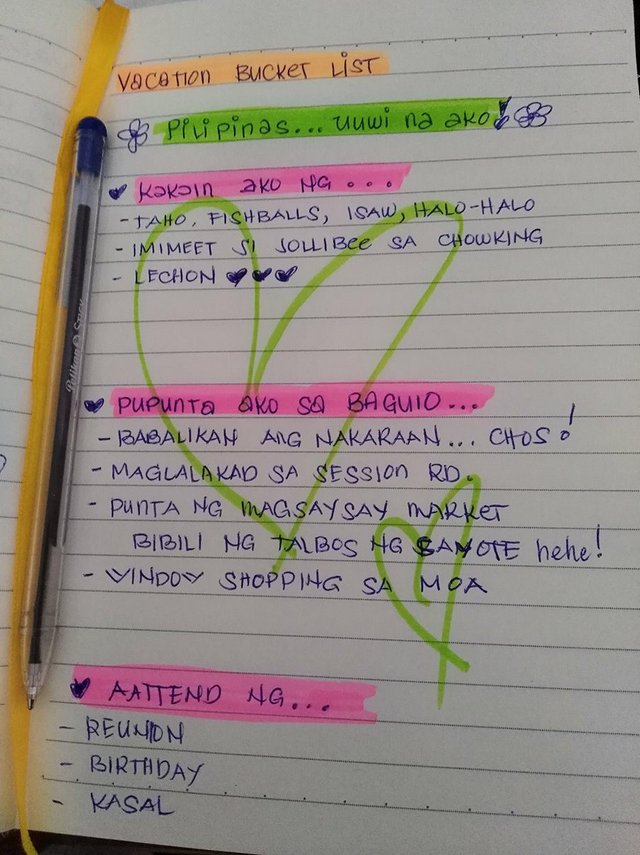 Vacation Bucket List
Pilipinas... uuwi na ako!
Kakain ako ng...
- TAHO, FISHBALLS, ISAW, HALO-HALO
- IMIMEET SI JOLLIBEE SA CHOWKING
- LECHON
PUPUNTA AKO SA BAGUIO...
- BABALIKAN ANG NAKARAAN... CHOS!
- MAGLALAKAD SA SESSION RD.
- PUNTA NG MAGSAYSAY MARKET
BIBILI NG TALBOS NG SAYOTE hehe!
- WINDOW SHOPPING SA MOA
AATTEND NG...
- REUNION
- BIRTHDAY
- KASAL